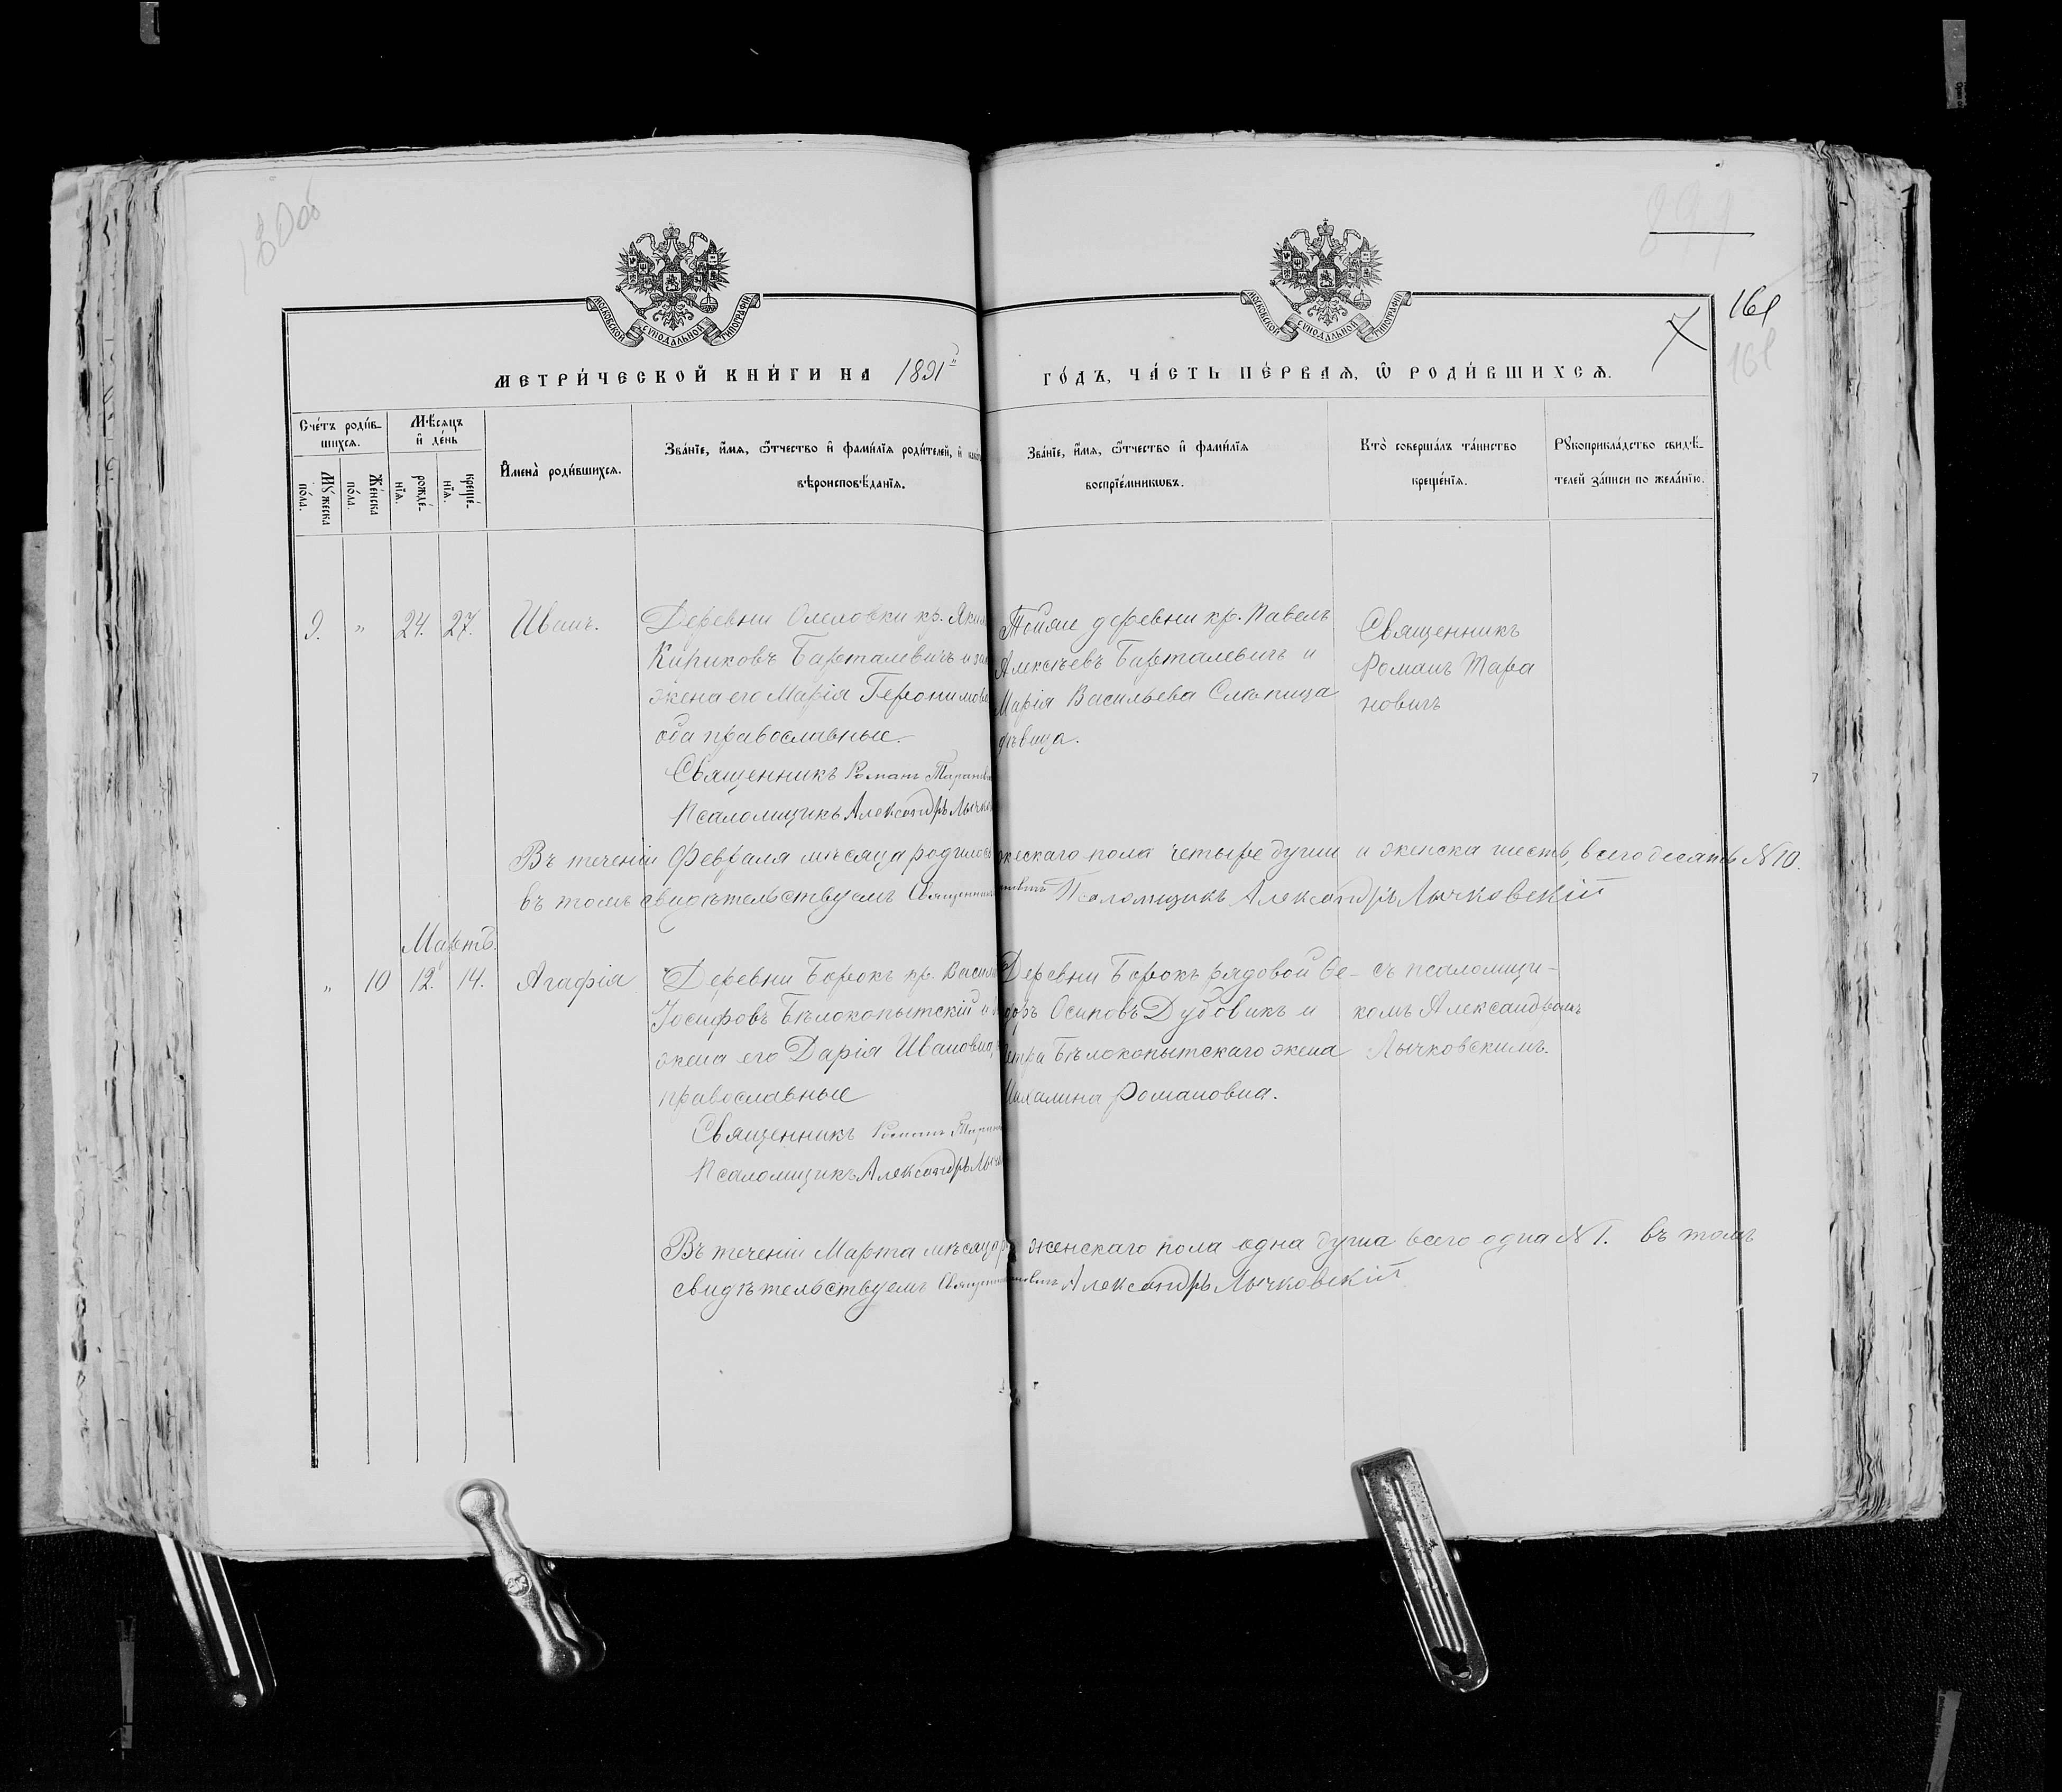 180об
МОСКОВСКОЙ СѴНОДАЛЬНОЙ ТИПОГРАФІИ
МОСКОВСКОЙ СѴНОДАЛЬНОЙ ТИПОГРАФІИ
7
161
161
МЕТРИ́ЧЕСКОЙ КНИ́ГИ НА 1891
ГО́ДЪ, ЧА́СТЬ ПЕ́РВАѦ, Ѿ РОДИ́ВШИХСѦ.
Сче́тъ роди́в-
шихсѧ.
Мꙋ́жеска по́ла.
Же́нска по́ла.
Мѣ́сѧцъ и҆ де́нь
рожде́-нїѧ.
креще́-нїѧ.
И҆мена̀ роди́вшихсѧ.
Зва́нїе, и҆́мѧ, ѻ҆́тчество и҆ фами́лїѧ роди́телей, и҆
вѣроисповѣ́данїѧ.
Зва́нїе, и҆́мѧ, ѻ҆́тчество и҆ фами́лїѧ
воспрїе́мникѡвъ.
Кто̀ соверша́лъ та́инство
креще́нїѧ.
Рꙋкоприкла́дство свидѣ́-
телей за́писи по жела́нїю.
9. " 24. 27. Иванъ.
Деревни Олеховки кр. Яким
Кириковъ Барталевичъ и зак
жена его Марія Героним
оба православные.
Священникъ Романъ Таранов
Псаломщикъ Александръ Лычк
Тойже деревни кр. Павелъ
Алексѣевъ Барталевичъ и
Марія Васильева
дѣвица.
Священникъ
Романъ Тара
новичъ
Въ теченіи Февраля мѣсяца родилось жескаго пола четыре души и женска шесть, всего десять № 10.
въ томъ свидѣтельствуемъ Священникъ Псаломщикъ Александръ Лычковскій
Мартъ.
" 10 12. 14. Агафія
Деревни Борокъ кр. Васил
Іосифовъ Бѣлокопытскій и
жена его Дарія Ивановна,
православные
Священникъ Романъ Таран
Псаломщикъ Александръ Лыч
Деревни Борокъ рядовой Ѳе-
доръ Осиповъ Дубовикъ и
Петра Бѣлокопытскаго жена
Михалина Романовна.
съ псаломщи-
комъ Александромъ
Лычковскимъ.
Въ теченіи Марта мѣсяца женскаго пола одна душа всего одна № 1. въ томъ
свидѣтельствуемъ Священ Александръ Лычковскій